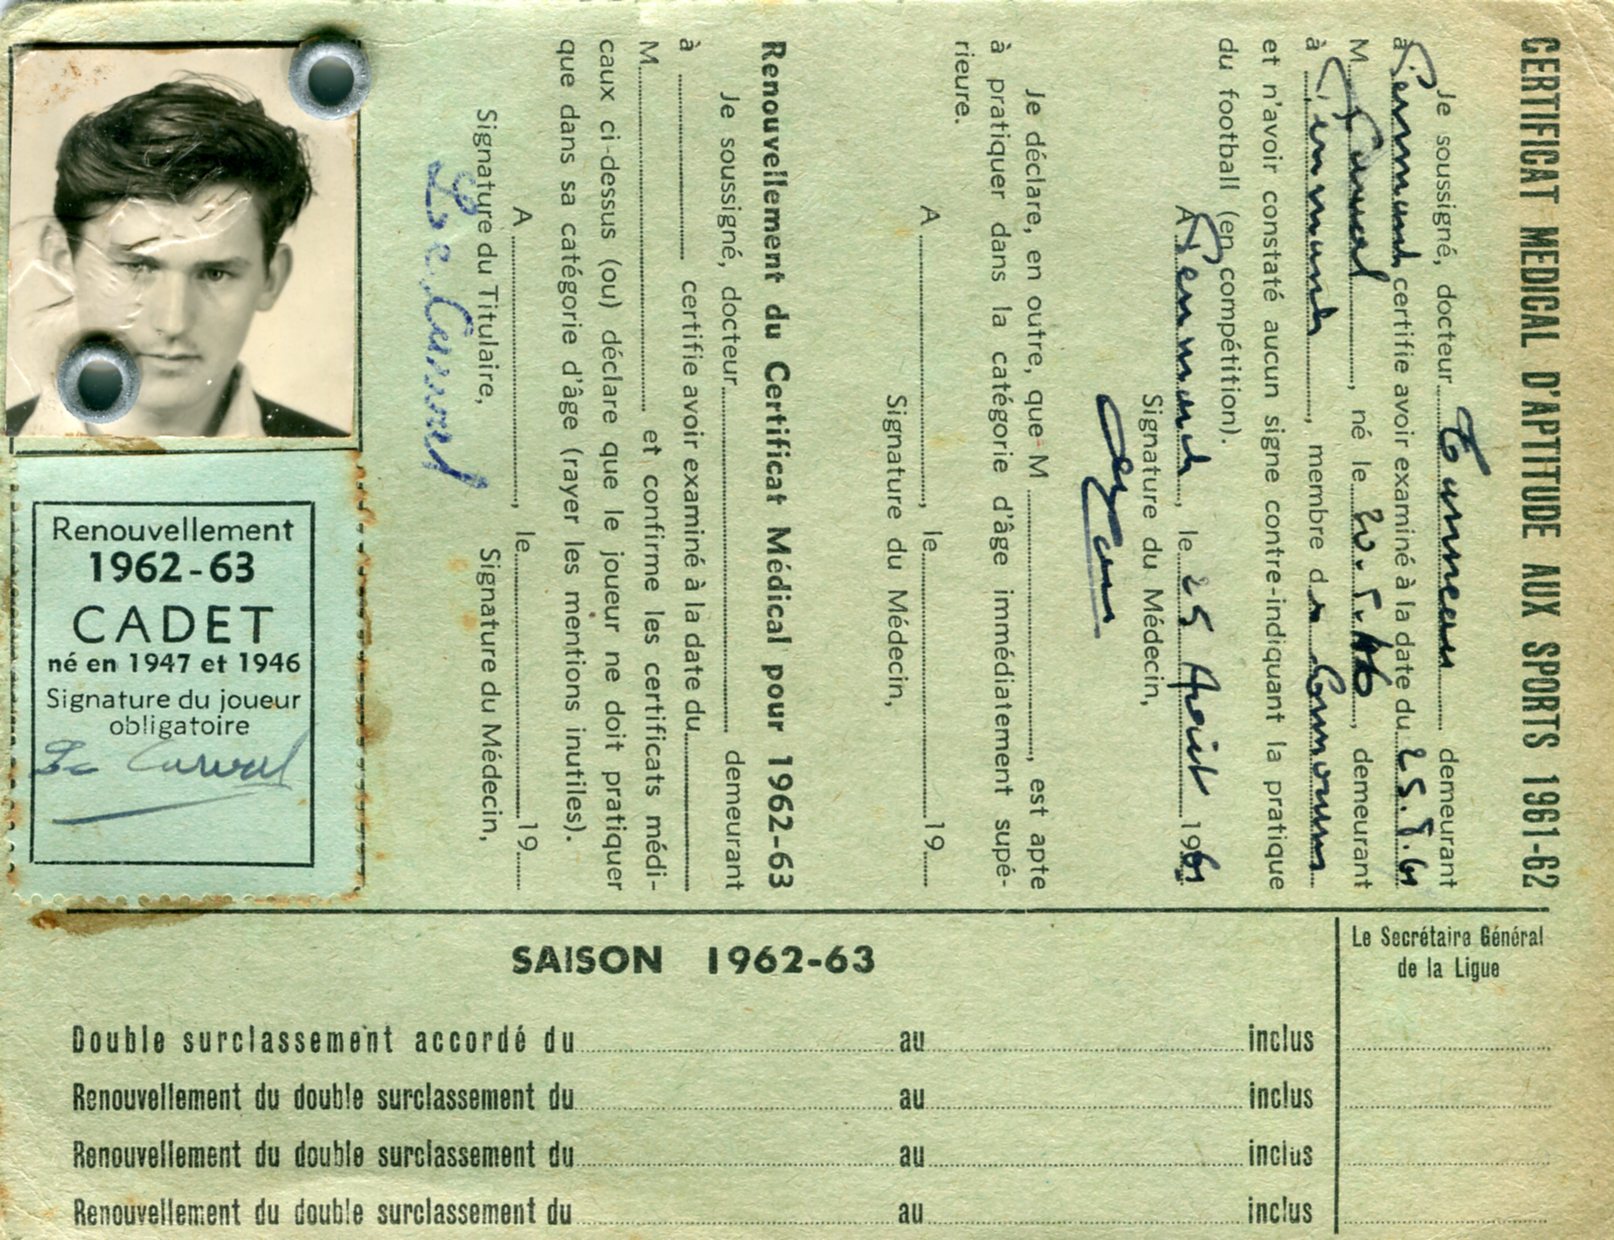 CERTIFICAT MEDICAL D'APTITUDE AUX SPORTS 1961-62
Je soussigné, docteur demeurant
à certifie avoir examiné à la date du 25.8.61
M. , né le 20.5.46, demeurant
à , membre d
et n'avoir constaté aucun signe contre-indiquant la pratique
du football (en compétition).
A , le 25 Août 1961
Signature du Médecin,
Je déclare, en outre, que M , est apte
à pratiquer dans la catégorie d'âge immédiatement supé-
rieure.
A , le 19
Signature du Médecin,
Renouvellement du Certificat Médical pour 1962-63
Je soussigné, docteur demeurant
à certifie avoir examiné à la date du
M et confirme les certificats médi-
caux ci-dessus (ou) déclare que le joueur ne doit pratiquer
que dans sa catégorie d'âge (rayer les mentions inutiles).
A , le 19
Signature du Titulaire, Signature du Médecin,
Renouvellement
1962-63
CADET
né en 1947 et 1946
Signature du joueur
obligatoire
SAISON 1962-63
Le Secrétaire Général
de la Ligue
Double surclassement accordé du au inclus
Renouvellement du double surclassement du au inclus
Renouvellement du double surclassement du au inclus
Renouvellement du double surclassement du au inclus